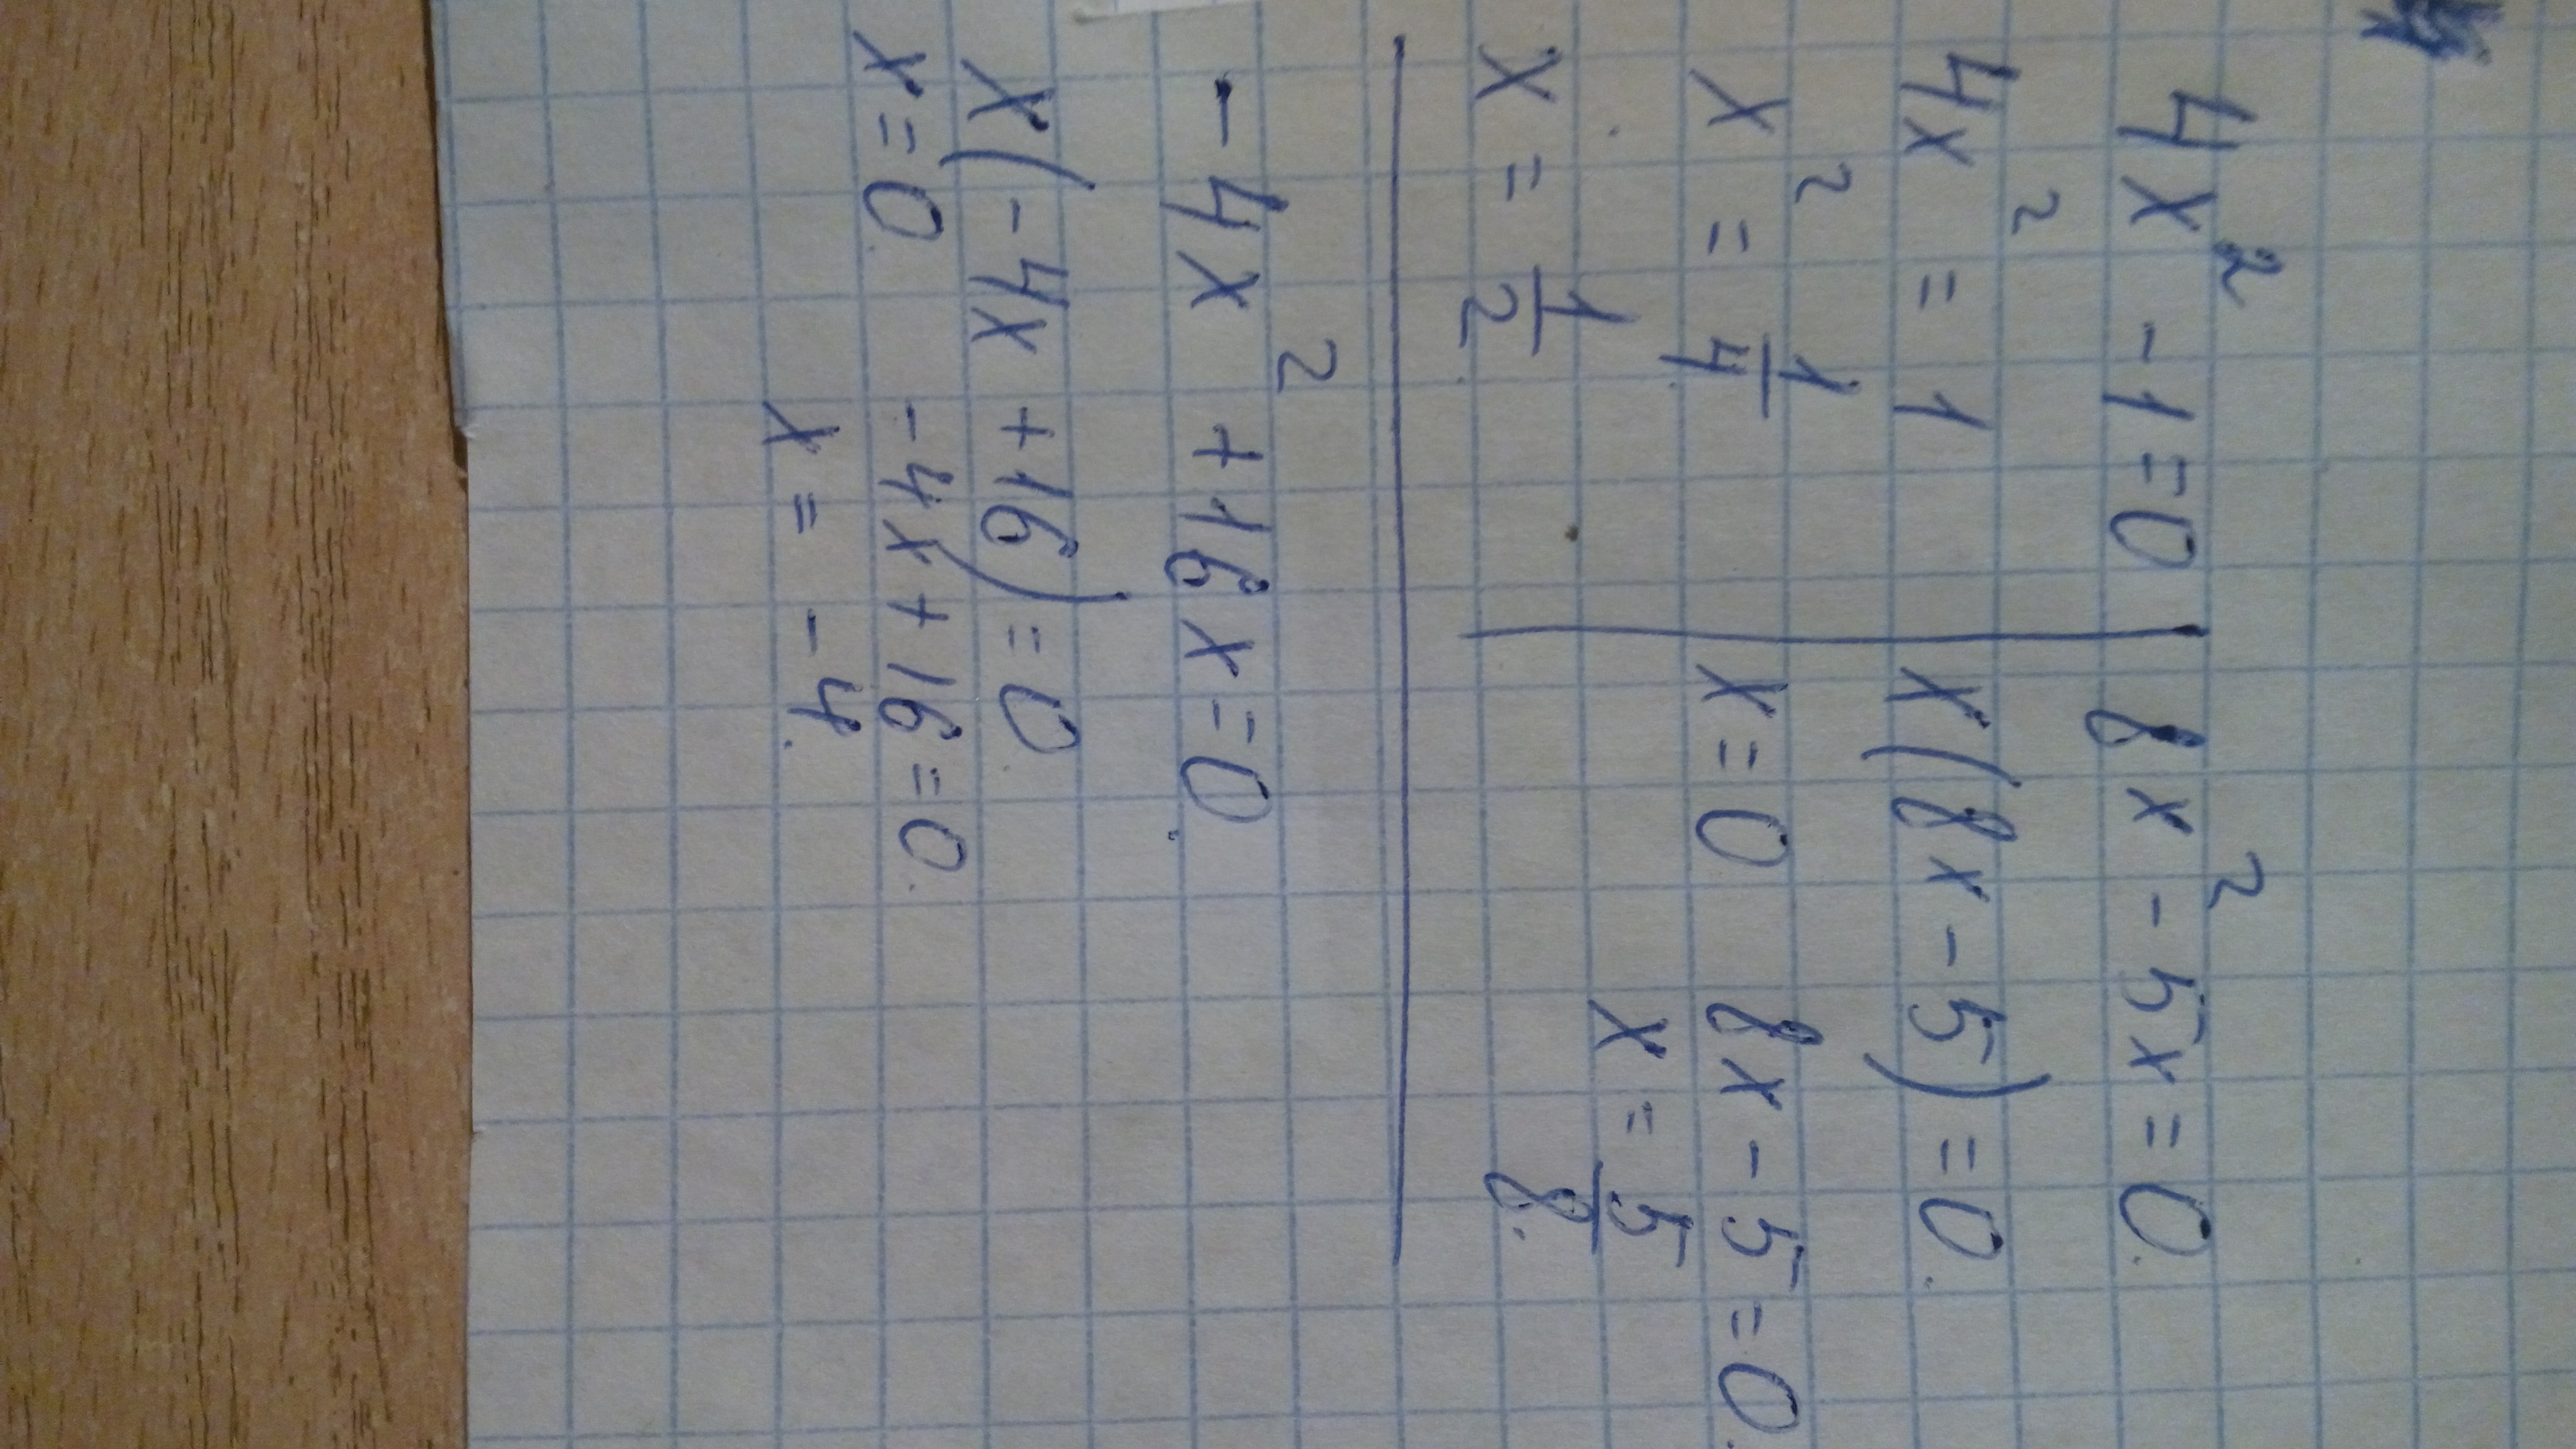 4x² - 1 = 0
4x² = 1
x² = 1/4
x = 1/2
8x² - 5x = 0.
x(8x - 5) = 0.
x = 0 8x - 5 = 0.
x = 5/8.
- 4x² + 16x = 0.
x(-4x + 16) = 0.
x = 0. -4x + 16 = 0.
x = -4.